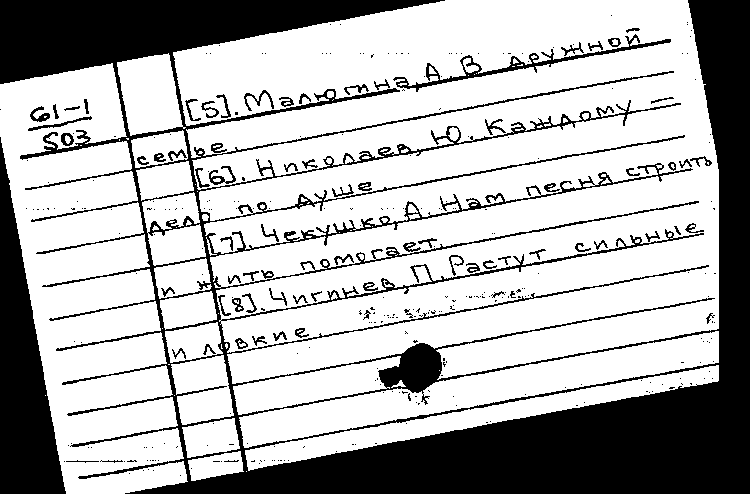 61-1
503
[5]. Малюгина, А. В дружной
семье.
[6]. Николаев, Ю. Каждому —
дело по душе.
[7]. Чекушко, А. Нам песня строить
и жить помогает.
[8]. Чигинев, П. Растут сильные
и ловкие.